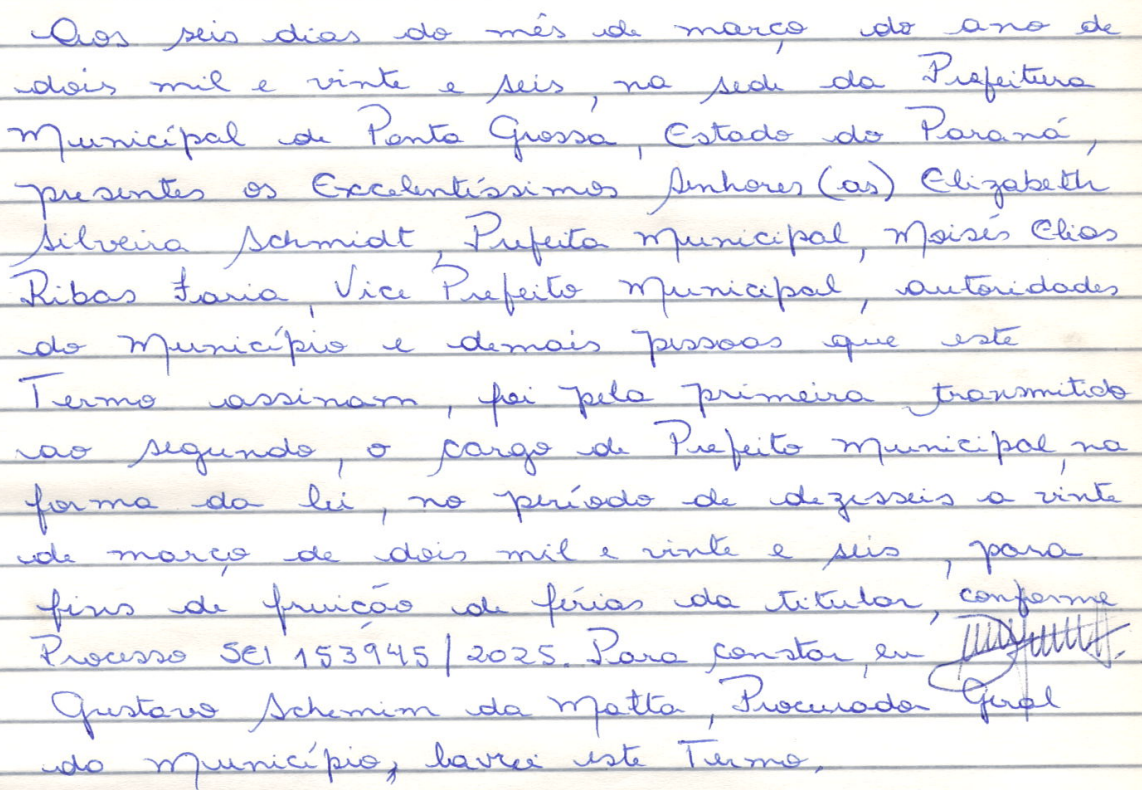 Aos seis dias do mês de março do ano de
dois mil e vinte e seis, na sede da Prefeitura
Municipal de Ponta Grossa, Estado do Paraná,
presentes os Excelentíssimos Senhores (as) Elizabeth
Silveira Schmidt, Prefeita Municipal, Moisés Elias
Ribas Faria, Vice Prefeito Municipal, autoridades
do Município e demais pessoas que este
Termo assinam, foi pela primeira transmitido
ao segundo, o cargo de Prefeito Municipal, na
forma da lei, no período de dezesseis a vinte
de março de dois mil e vinte e seis, para
fins de fruição de férias da titular, conforme
Processo SEI 153945/2025. Para constar, eu
Gustavo Schemim da Matta, Procurador Geral
do Município, lavrei este Termo.